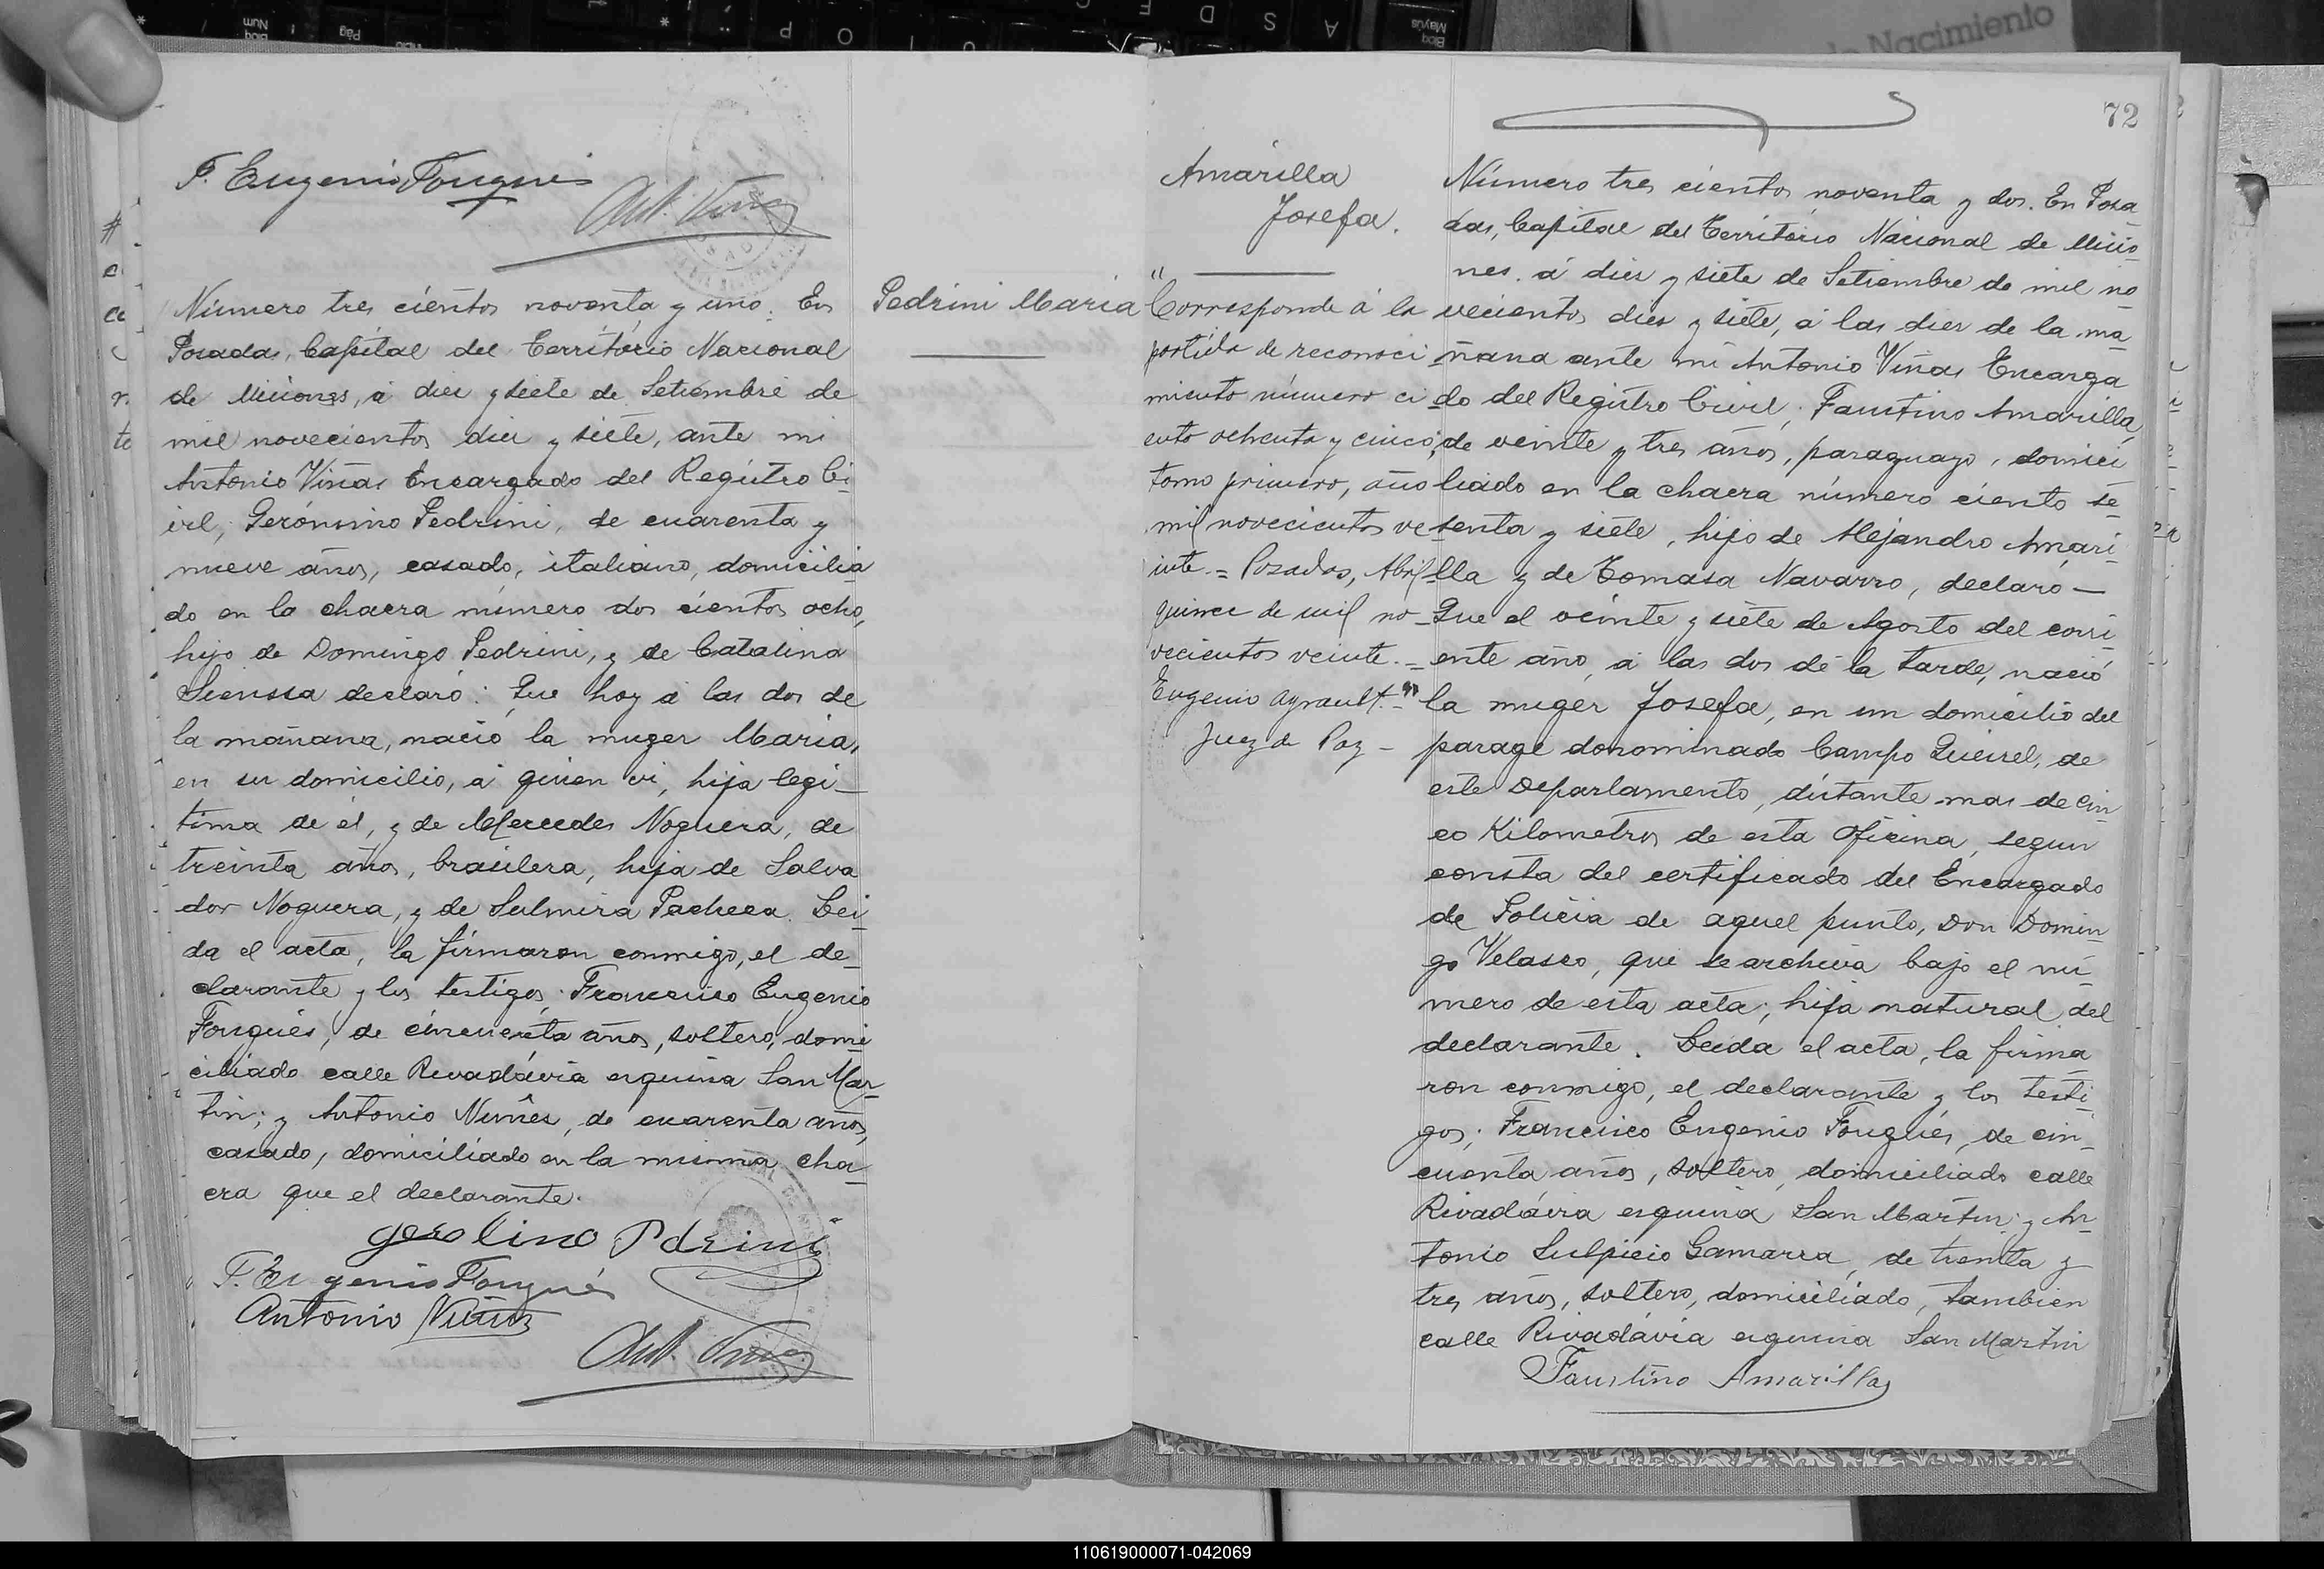 72
F. Eugenio Fouqués
Ant. Viñas
Número tres cientos noventa y uno. En
Posadas, Capital del Territorio Nacional
de Misiones, á diez y siete de Setiembre de
mil novecientos diez y siete, ante mi
Antonio Viñas Encargado del Registro Ci-
vil, Gerónimo Pedrini, de cuarenta y
nueve años, casado, italiano, domicilia
do en la chacra número dos cientos ocho,
hijo de Domingo Pedrini, y de Catalina
declaró: Que hoy á las dos de
la mañana, nació la muger Maria,
en su domicilio, á quien vi, hija legi-
tima de él, y de Mercedes Noguera, de
treinta años, brasilera, hija de Salva
dor Noguera, y de Sulmira Pacheca. Lei-
da el acta, la firmaron conmigo, el de-
clarante y los testigos; Francisco Eugenio
Fouqués, de cincuenta años, soltero, domi
ciliado calle Rivadávia esquina San Mar-
tin; y Antonio Nuñes, de cuarenta años,
casado, domiciliado en la misma cha-
cra que el declarante.
gerolino Pdrini
F. Eugenio Fouqués
Antonio Nuñes
Ant. Viñas
Pedrini Maria
Amarilla
Josefa.
"
Corresponde á la
partida de reconoci
miento número ci
ento ochenta y cinco,
tomo primero, año
mil novecientos ve
inte. = Posadas, Abril
quince de mil no-
vecientos veinte. =
Eugenio Ayrault. "
Juez de Paz -
Número tres cientos noventa y dos. En Posa-
das, Capital del Territorio Nacional de Misio-
nes. á diez y siete de Setiembre de mil no-
vecientos diez y siete, á las diez de la ma-
ñana ante mi Antonio Viñas Encarga
do del Registro Civil, Faustino Amarilla,
de veinte y tres años, paraguayo, domici
liado en la chacra número ciento se-
senta y siete, hijo de Alejandro Amari-
lla y de Tomasa Navarro, declaró —
Que el veinte y siete de Agosto del corri-
ente año, á las dos de la tarde, nació
la muger Josefa, en un domicilio del
parage donominado Campo Queirel, de
este Departamento, distante mas de cin-
co Kilometros de esta Oficina, segun
consta del certificado del Encargado
de Policia de aquel punto, Don Domin-
go Velasco, que se archiva bajo el nú-
mero de esta acta; hija natural del
declarante. Leida el acta, la firma
ron conmigo, el declarante y los testi-
gos; Francisco Eugenio Fouqués, de cin-
cuenta años, soltero, domiciliado calle
Rivadávia esquina San Martin; y An-
tonio Sulpicio Gamarra, de treinta y
tres años, soltero, domiciliado, tambien
calle Rivadávia esquina San Martin
Faustino Amarilla
110619000071-042069